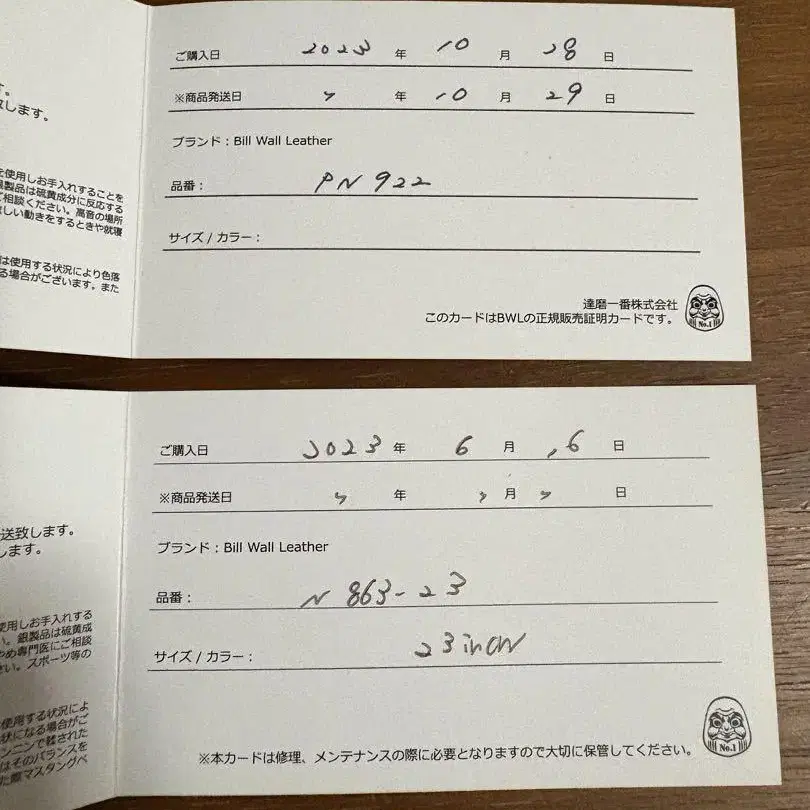 す。
致します。
を使用しお手入れすることを
銀製品は硫黄成分に反応する
ご相談ください。高音の場所
激しい動きをするときや就寝
は使用する状況により色落
る場合がございます。また
ご購入日 2023 年 10 月 28 日
※商品発送日 〃 年 10 月 29 日
ブランド：Bill Wall Leather
品番： PN922
サイズ / カラー：
達磨一番株式会社
このカードはBWLの正規販売証明カードです。
No.1
送致します。
します。
使用しお手入れする
い。銀製品は硫黄成
やめ専門医にご相談
さい。スポーツ等の
使用する状況によ
状になる場合がご
ンニンで鞣された
はそのバランスを
た際マスタングペ
ご購入日 2023 年 6 月 16 日
※商品発送日 〃 年 〃 月 〃 日
ブランド：Bill Wall Leather
品番： N 863-23
サイズ / カラー： 23inch
※本カードは修理、メンテナンスの際に必要となりますので大切に保管してください。
No.1